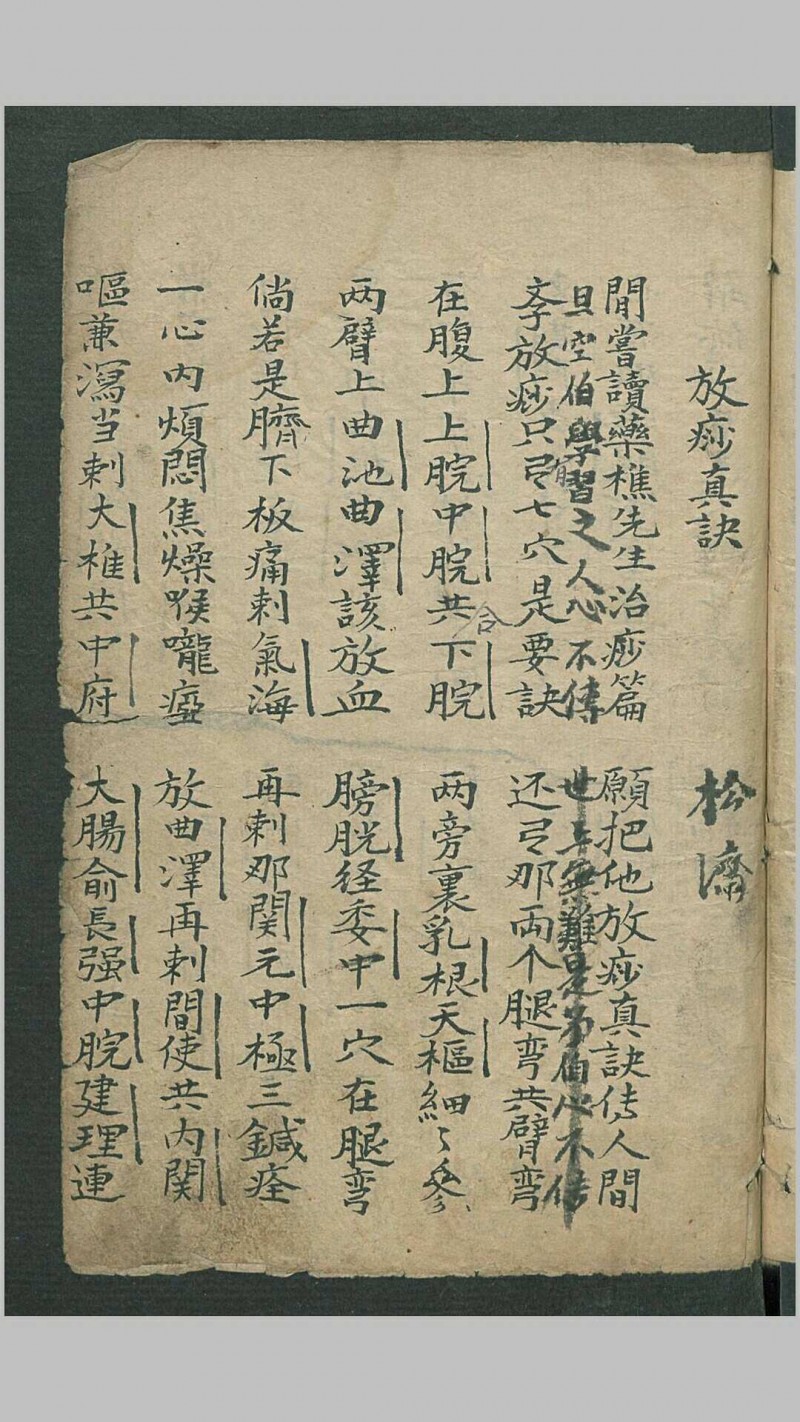 放痧真訣 松濤
閒嘗讀藥樵先生治痧篇 願把他放痧真訣传人間
旦空伯學習之人心不傳 世上無難是另伯心不傳
李放痧只弓有七穴是要訣 还弓那两个腿弯共臂弯
在腹上上脘中脘共合下脘 两旁裏乳根天樞細々參
两臂上曲池曲澤該放血 膀胱経委中一穴在腿弯
倘若是臍下板痛刺氣海 再刺那関元中極三鍼痊
一心内煩悶焦燥喉嚨瘂 放曲澤再刺間使共内関
嘔兼瀉当刺大椎共中府 大腸俞長强中脘建理連